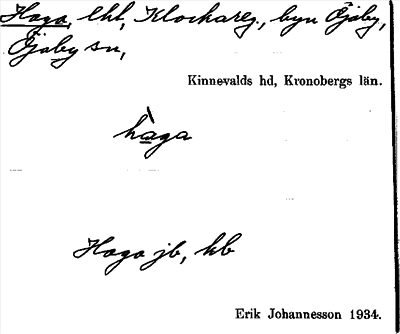 Haga, lht, Klockareg., byn Öjaby,
Öjaby sn,
Kinnevalds hd, Kronobergs län.
hàga
Haga jb, kb
Erik Johannesson 1934.